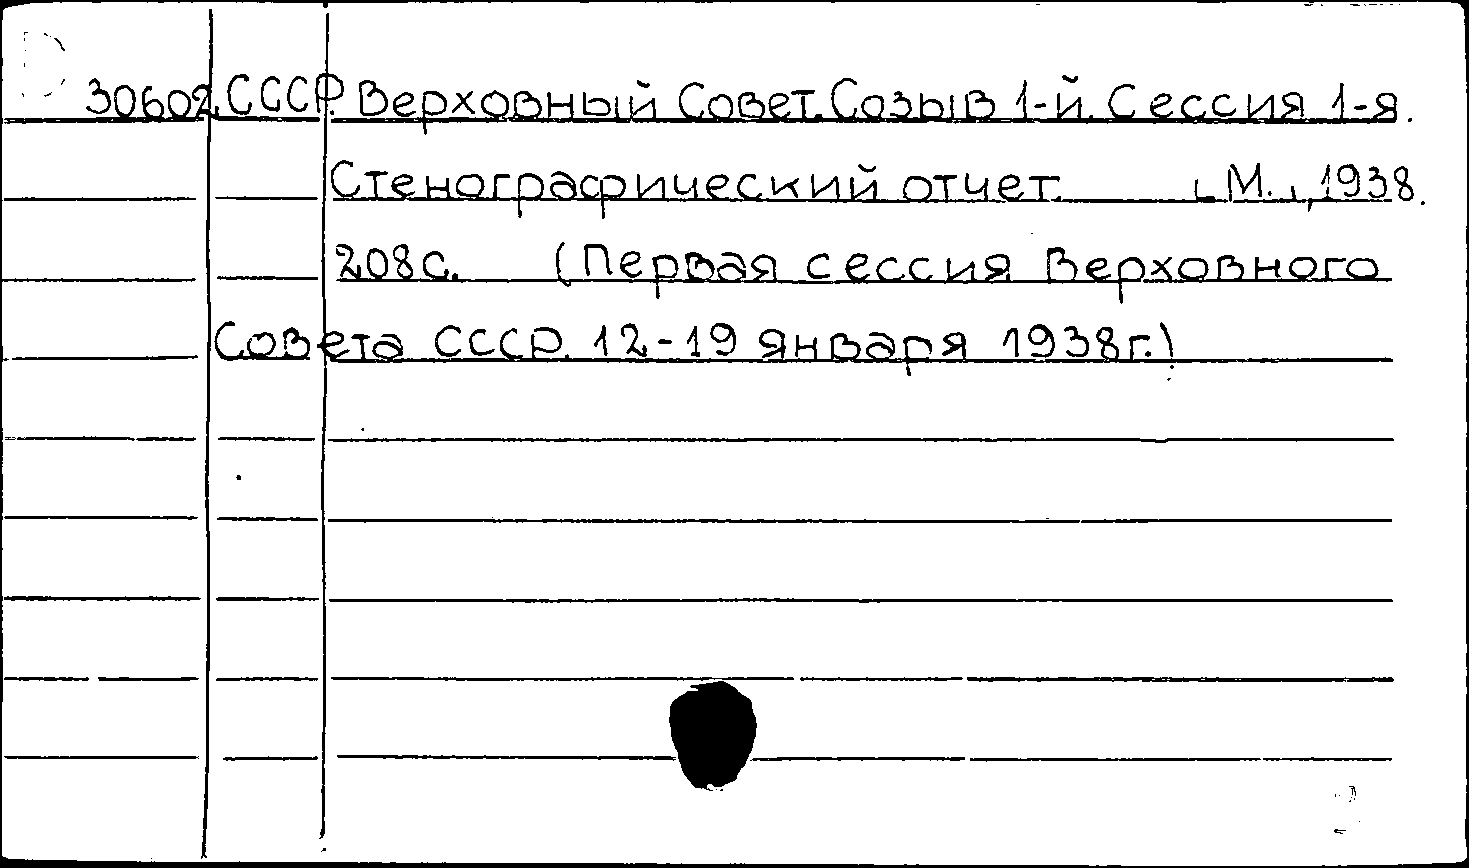 30602 СССР. Верховный Совет. Созыв 1-й. Сессия 1-я.
Стенографический отчет. [М.], 1938.
208с. (Первая сессия Верховного
Совета СССР. 12-19 января 1938г.)